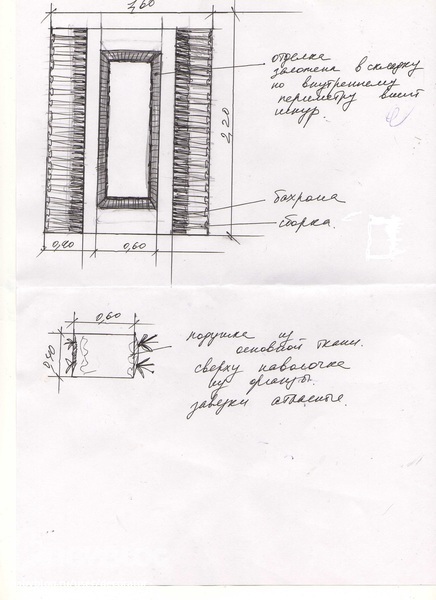 1,60
отделка
заложена в складку
по внутреннему
периметру вшит
шнур.
2,20
бахрома
сборка.
0,60
0,60
подушка из
основной ткани.
сверху наволочка
из органзы.
завязки атласные.